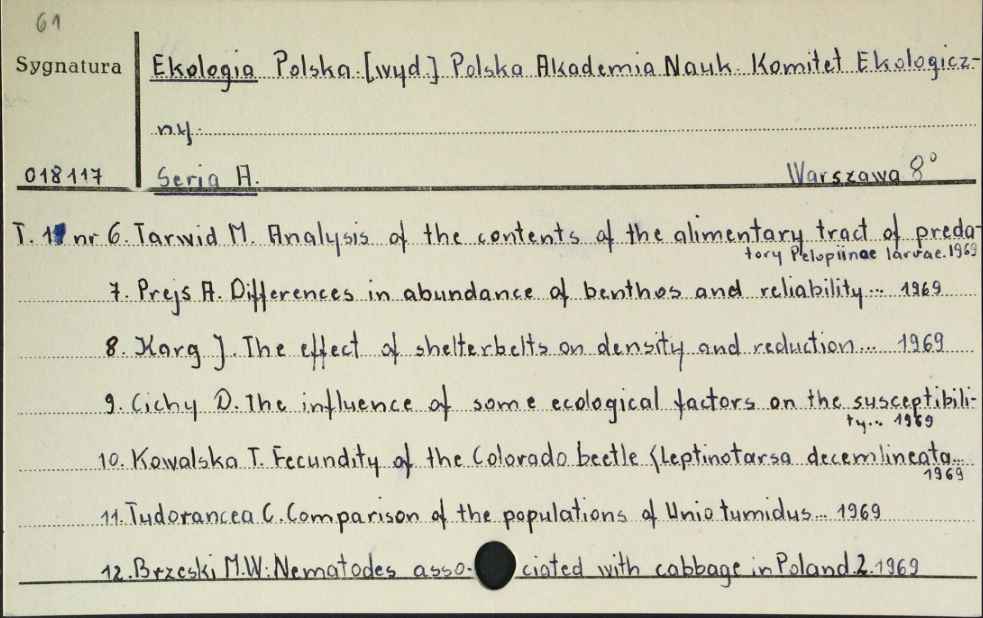 61
Sygnatura
Ekologia Polska. [wyd.] Polska Akademia Nauk. Komitet Ekologicz-
ny.
018117 Seria A. Warszawa 8°
T. 17 nr 6. Tarwid M. Analysis of the contents of the alimentary tract of preda-
tory Pelopiinae larvae. 1969
7. Prejs A. Differences in abundance of benthos and reliability... 1969
8. Karg J. The effect of shelterbelts on density and reduction... 1969
9. Cichy D. The influence of some ecological factors on the susceptibili-
ty... 1969
10. Kowalska T. Fecundity of the Colorado beetle (Leptinotarsa decemlineata...
1969
11. Tudorancea C. Comparison of the populations of Unio tumidus... 1969
12. Brzeski M.W. Nematodes asso- ciated with cabbage in Poland. 2. 1969